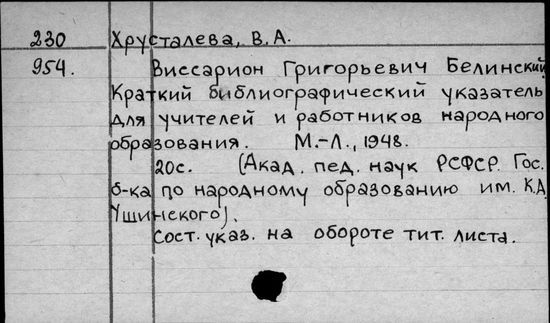 230 Хрусталева, В.А.
954. Виссарион Григорьевич Белинский
Краткий библиографический указатель
для учителей и работников народного
образования. М.-Л., 1948.
20с. (Акад. пед. наук РСФСР. Гос.
б-ка по народному образованию им. К.Д.
Ушинского).
Сост. указ. на обороте тит. листа.